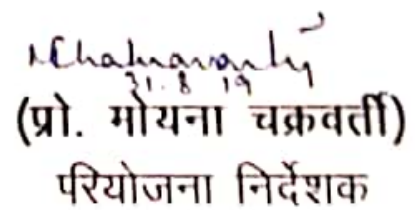 MChakravarty
31.8.19
(प्रो. मोयना चक्रवर्ती)
परियोजना निर्देशक